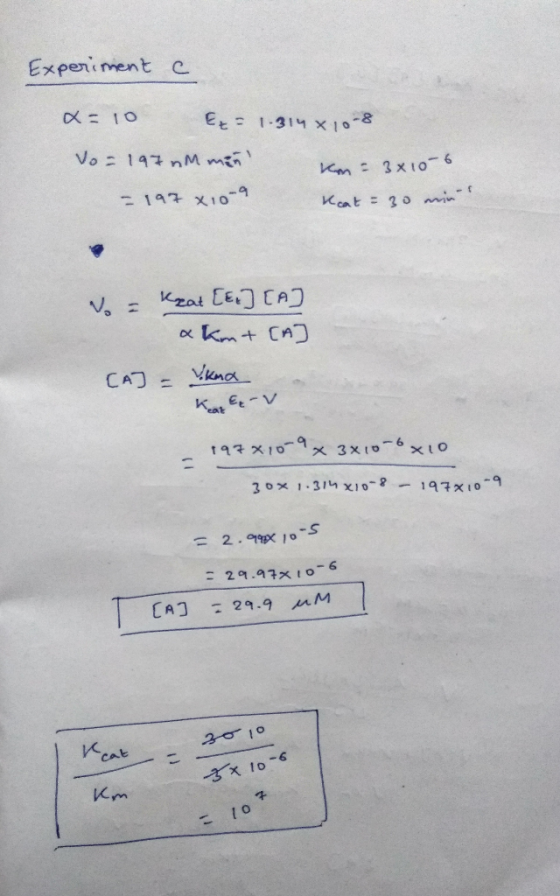 Experiment C
α = 10 Et = 1.314 × 10⁻⁸
V₀ = 197 nM min⁻¹ Km = 3×10⁻⁶
= 197 ×10⁻⁹ Kcat = 30 min⁻¹
V₀ = Kcat [Et] [A] / α Km + [A]
[A] = V.Kmα / Kcat Et - V
= 197 ×10⁻⁹ × 3×10⁻⁶ ×10 / 30× 1.314 ×10⁻⁸ - 197×10⁻⁹
= 2.99× 10⁻⁵
= 29.97×10⁻⁶
[A] = 29.9 µM
Kcat / Km = 30 10 / 3× 10⁻⁶
= 10⁷